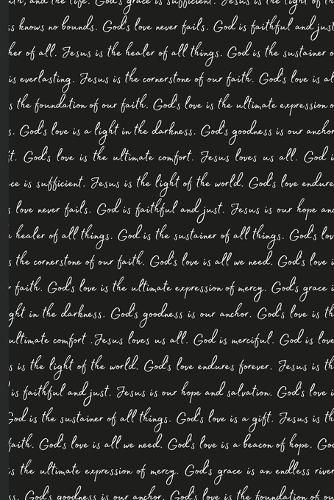 uth, and the life. God's grace is sufficient. Jesus is the light of th
s knows no bounds. God's love never fails. God is faithful and just
her of all. Jesus is the healer of all things. God is the sustainer o
is everlasting. Jesus is the cornerstone of our faith. God's love is al
s the foundation of our faith. God's love is the ultimate expression o
s. God's love is a light in the darkness. God's goodness is our ancho
t. God's love is the ultimate comfort. Jesus loves us all. God
ce is sufficient. Jesus is the light of the world. God's love endur
s love never fails. God is faithful and just. Jesus is our hope an
healer of all things. God is the sustainer of all things. God's lov
s the cornerstone of our faith. God's love is all we need. God's love i
faith. God's love is the ultimate expression of mercy. God's grace i
ght in the darkness. God's goodness is our anchor. God's love is th
ultimate comfort. Jesus loves us all. God is merciful. God is love
s is the light of the world. God's love endures forever. Jesus is th
is faithful and just. Jesus is our hope and salvation. God's love i
God is the sustainer of all things. God's love is a gift. Jesus is t
faith. God's love is all we need. God's love is a beacon of hope. Go
s the ultimate expression of mercy. God's grace is an endless rive
s. God's goodness is our anchor. God's love is the foundation of o